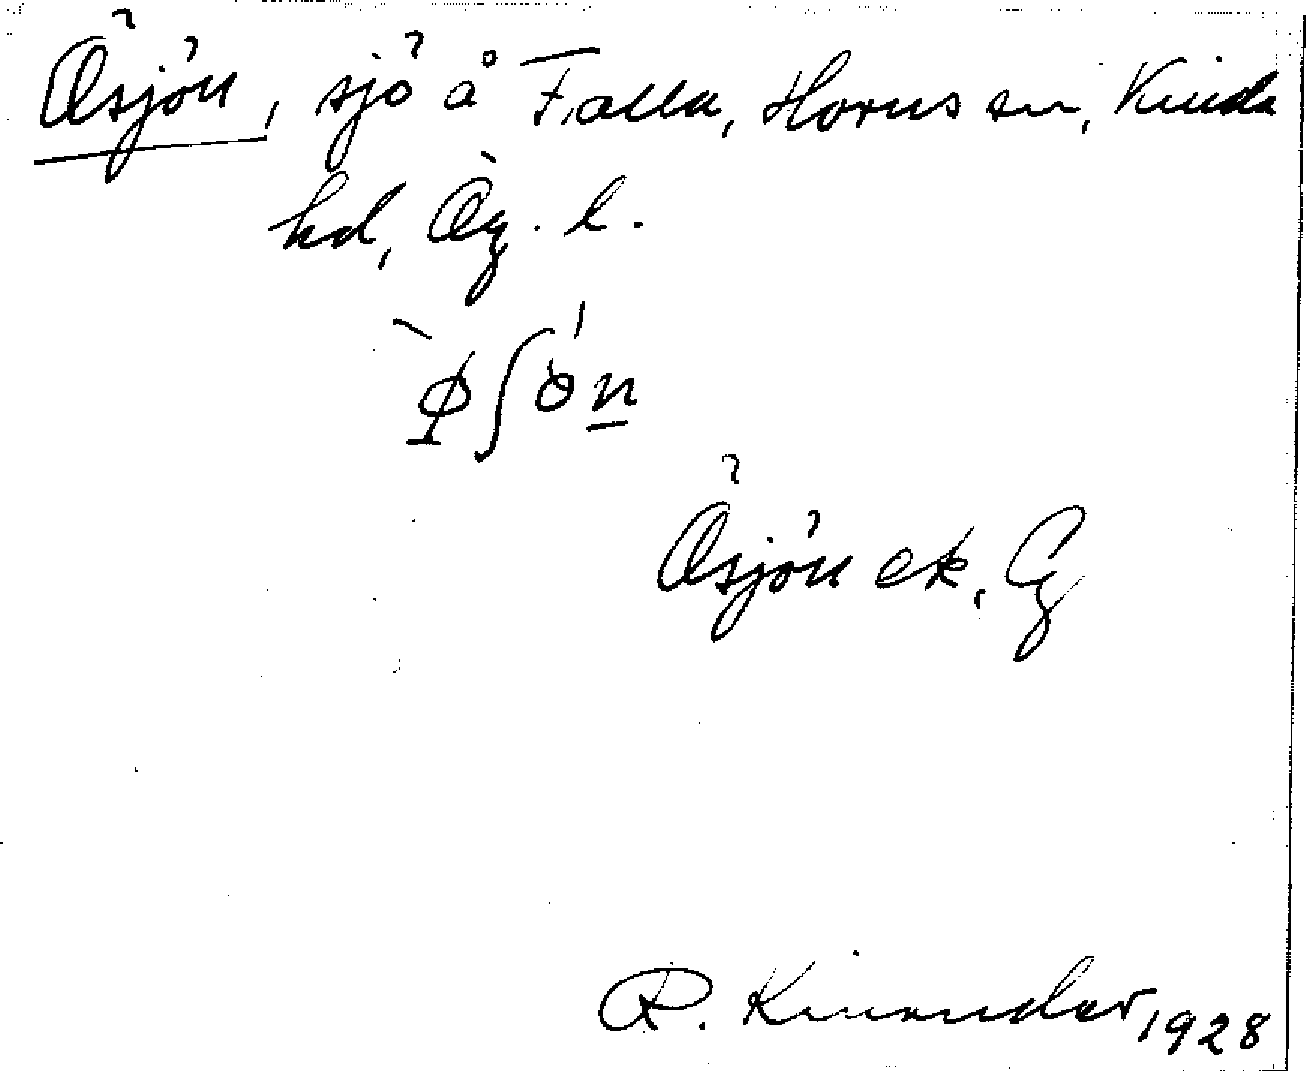 Ösjön, sjö å Falla, Horns sn, Kinda
hd, Ög. l.
Ösjön ek, G
R. Kinander, 1928